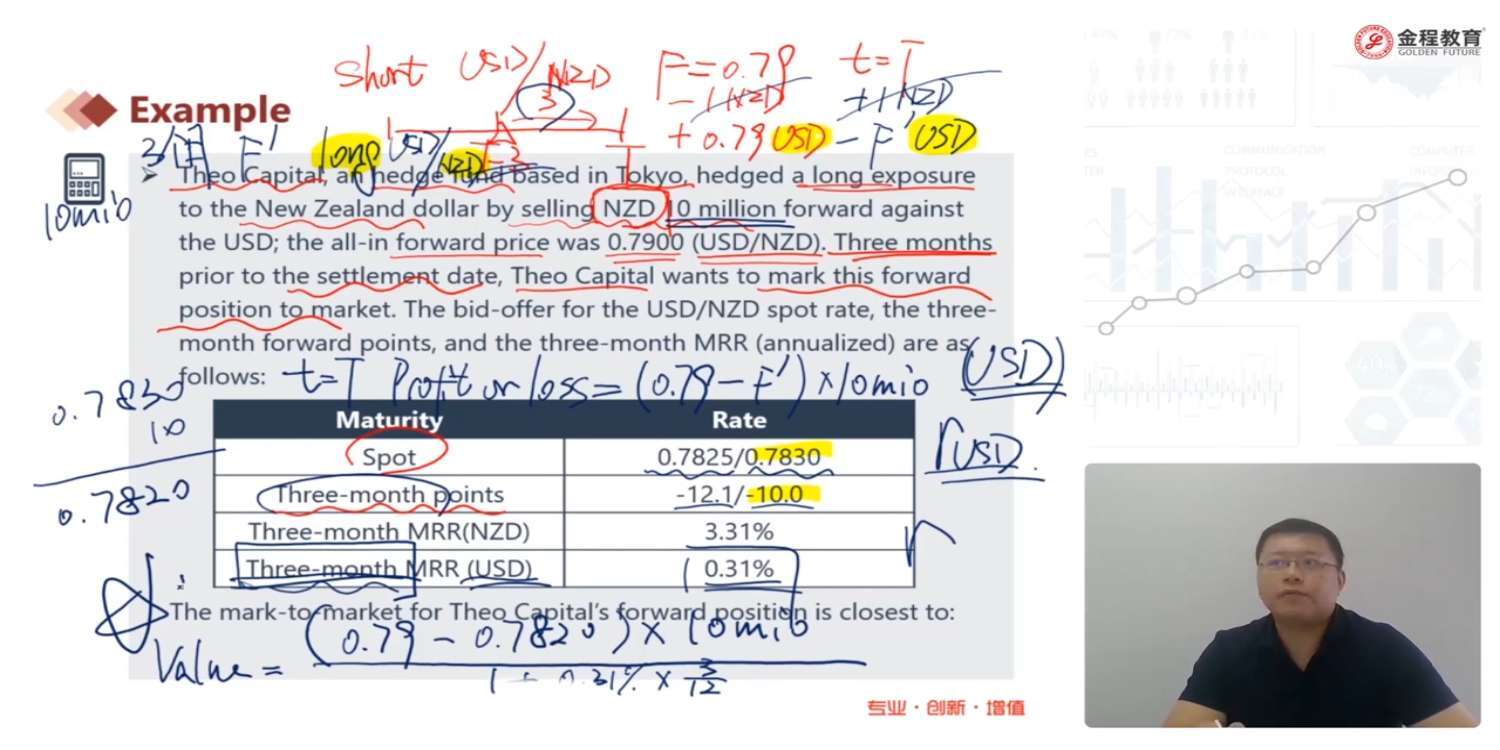 金程教育
GOLDEN FUTURE
short USD/NZD F=0.79 t=T
3 -1NZD +1NZD
Example
+0.79USD - F'USD
3个月 F' long USD/NZD
T
Theo Capital, an hedge fund based in Tokyo, hedged a long exposure
10mio
to the New Zealand dollar by selling NZD 10 million forward against
the USD; the all-in forward price was 0.7900 (USD/NZD). Three months
prior to the settlement date, Theo Capital wants to mark this forward
position to market. The bid-offer for the USD/NZD spot rate, the three-
month forward points, and the three-month MRR (annualized) are as
follows:
t=T Profit or loss=(0.79-F')×10mio (USD)
0.7830
10
0.7820
Maturity Rate
rUSD.
Spot 0.7825/0.7830
Three-month points -12.1/-10.0
Three-month MRR(NZD) 3.31%
r
Three-month MRR (USD) 0.31%
The mark-to-market for Theo Capital's forward position is closest to:
Value = (0.79-0.7820)×10mio
1+0.31%×3/12
专业·创新·增值